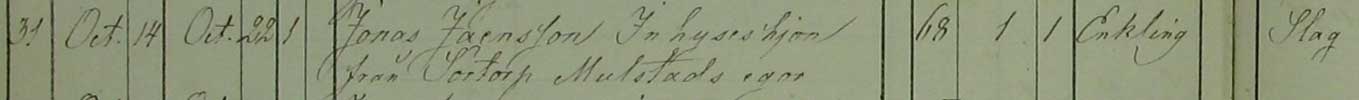 31 Oct. 14 Oct. 22 1 Jonas Jaensson Inhyseshjon 68 1 1 Enkling Slag
från Sortorp Mulstads egor